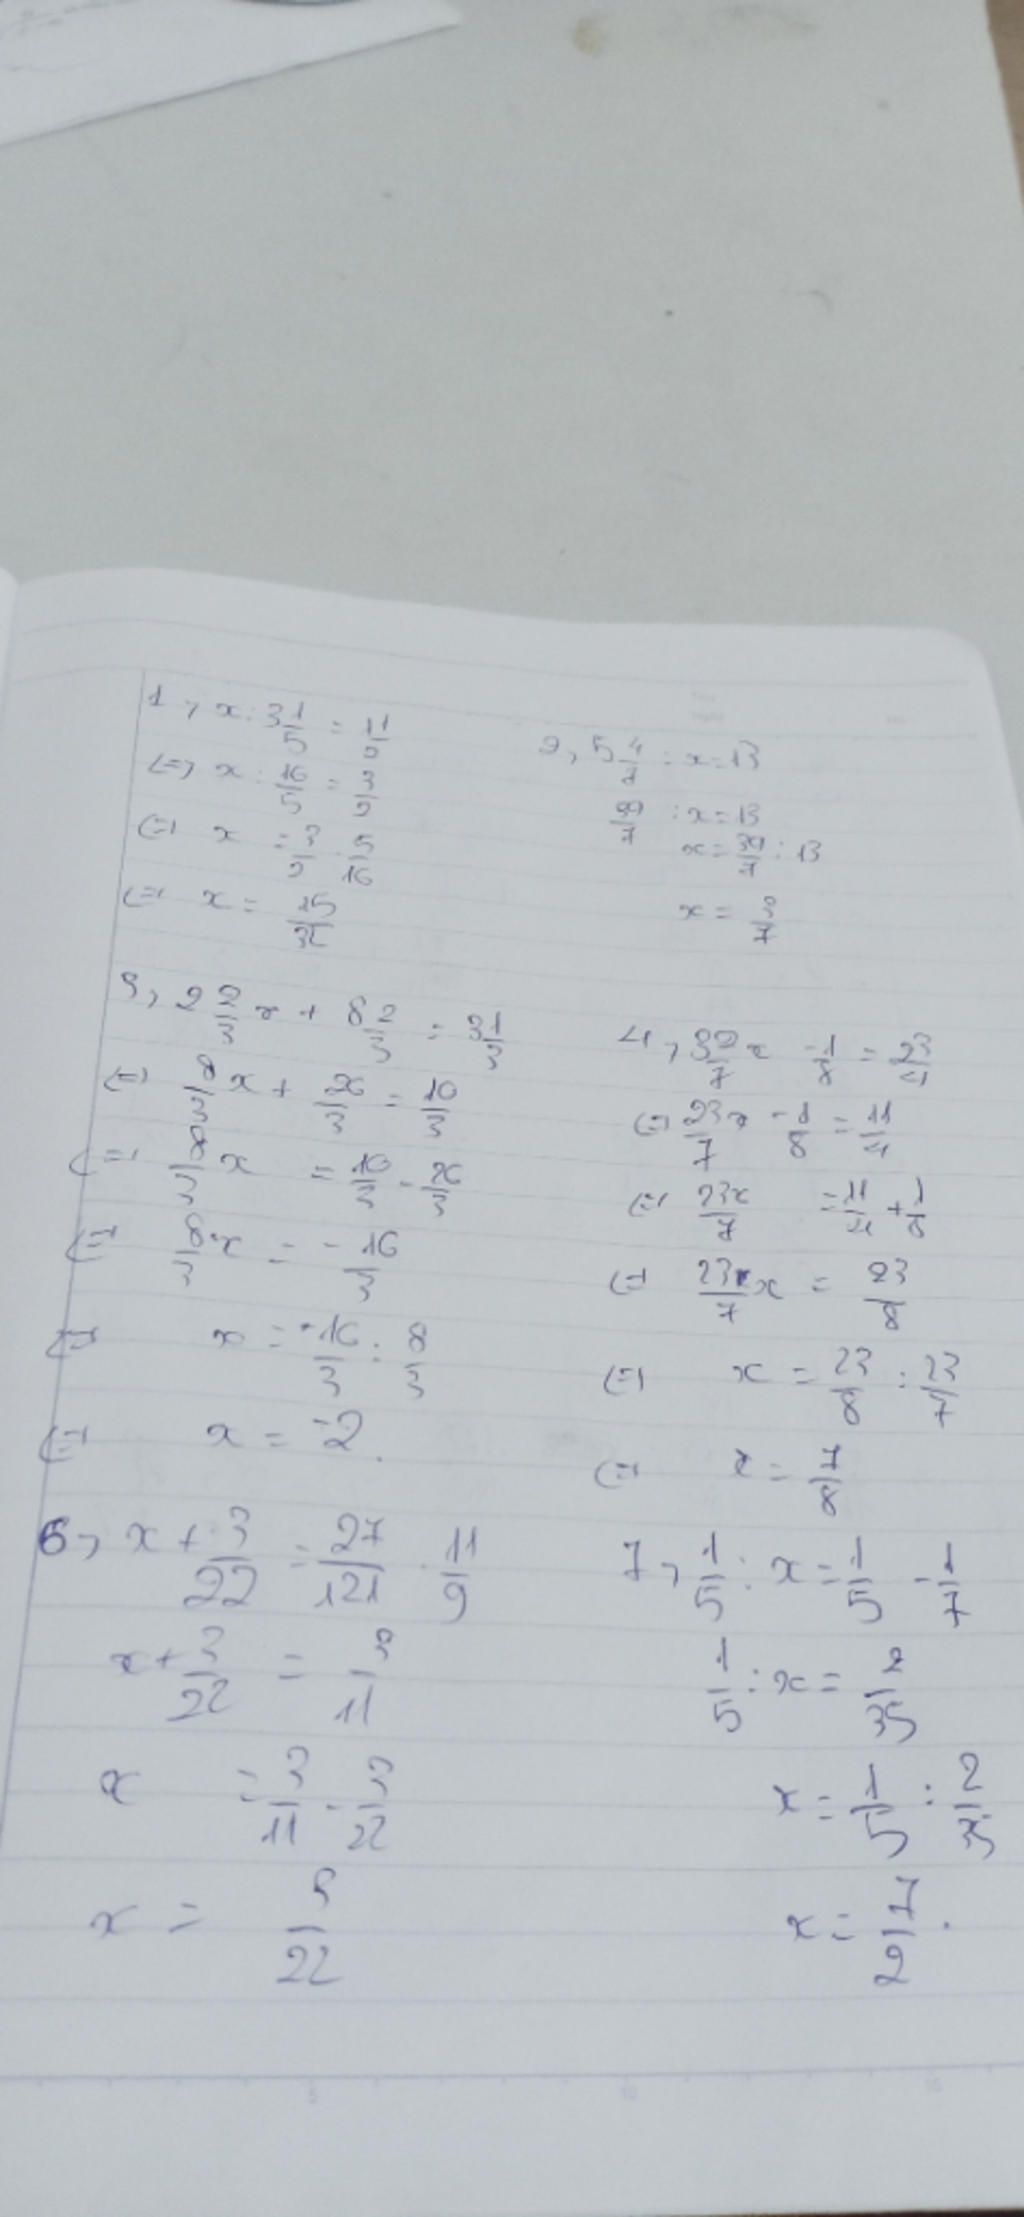 1, x : 3 1/5 = 1 1/2
(=) x : 16/5 = 3/2
(=) x = 3/2 . 5/16
(=) x = 15/32
2, 5 4/7 : x = 13
39/7 : x = 13
x = 39/7 : 13
x = 3/7
3, 2 2/3 x + 8 2/3 = 3 1/3
(=) 8/3 x + 26/3 = 10/3
(=) 8/3 x = 10/3 - 26/3
(=) 8/3 x = - 16/3
(=) x = -16/3 : 8/3
(=) x = -2.
4, 3 2/7 x - 1/8 = 2 3/4
(=) 23/7 x - 1/8 = 11/4
(=) 23x/7 = 11/4 + 1/8
(=) 23/7 x = 23/8
(=) x = 23/8 : 23/7
(=) x = 7/8
6, x + 3/22 = 27/121 . 11/9
x + 3/22 = 3/11
x = 3/11 - 3/22
x = 3/22
7, 1/5 : x = 1/5 - 1/7
1/5 : x = 2/35
x = 1/5 : 2/35
x = 7/2.